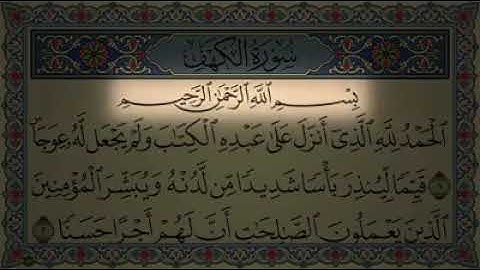 سُورَةُ الكَهْفِ
بِسْمِ ٱللَّهِ ٱلرَّحْمَٰنِ ٱلرَّحِيمِ
ٱلْحَمْدُ لِلَّهِ ٱلَّذِىٓ أَنزَلَ عَلَىٰ عَبْدِهِ ٱلْكِتَٰبَ وَلَمْ يَجْعَل لَّهُۥ عِوَجَا ۜ
۝١ قَيِّمًا لِّيُنذِرَ بَأْسًا شَدِيدًا مِّن لَّدُنْهُ وَيُبَشِّرَ ٱلْمُؤْمِنِينَ
ٱلَّذِينَ يَعْمَلُونَ ٱلصَّٰلِحَٰتِ أَنَّ لَهُمْ أَجْرًا حَسَنًا ۝٢